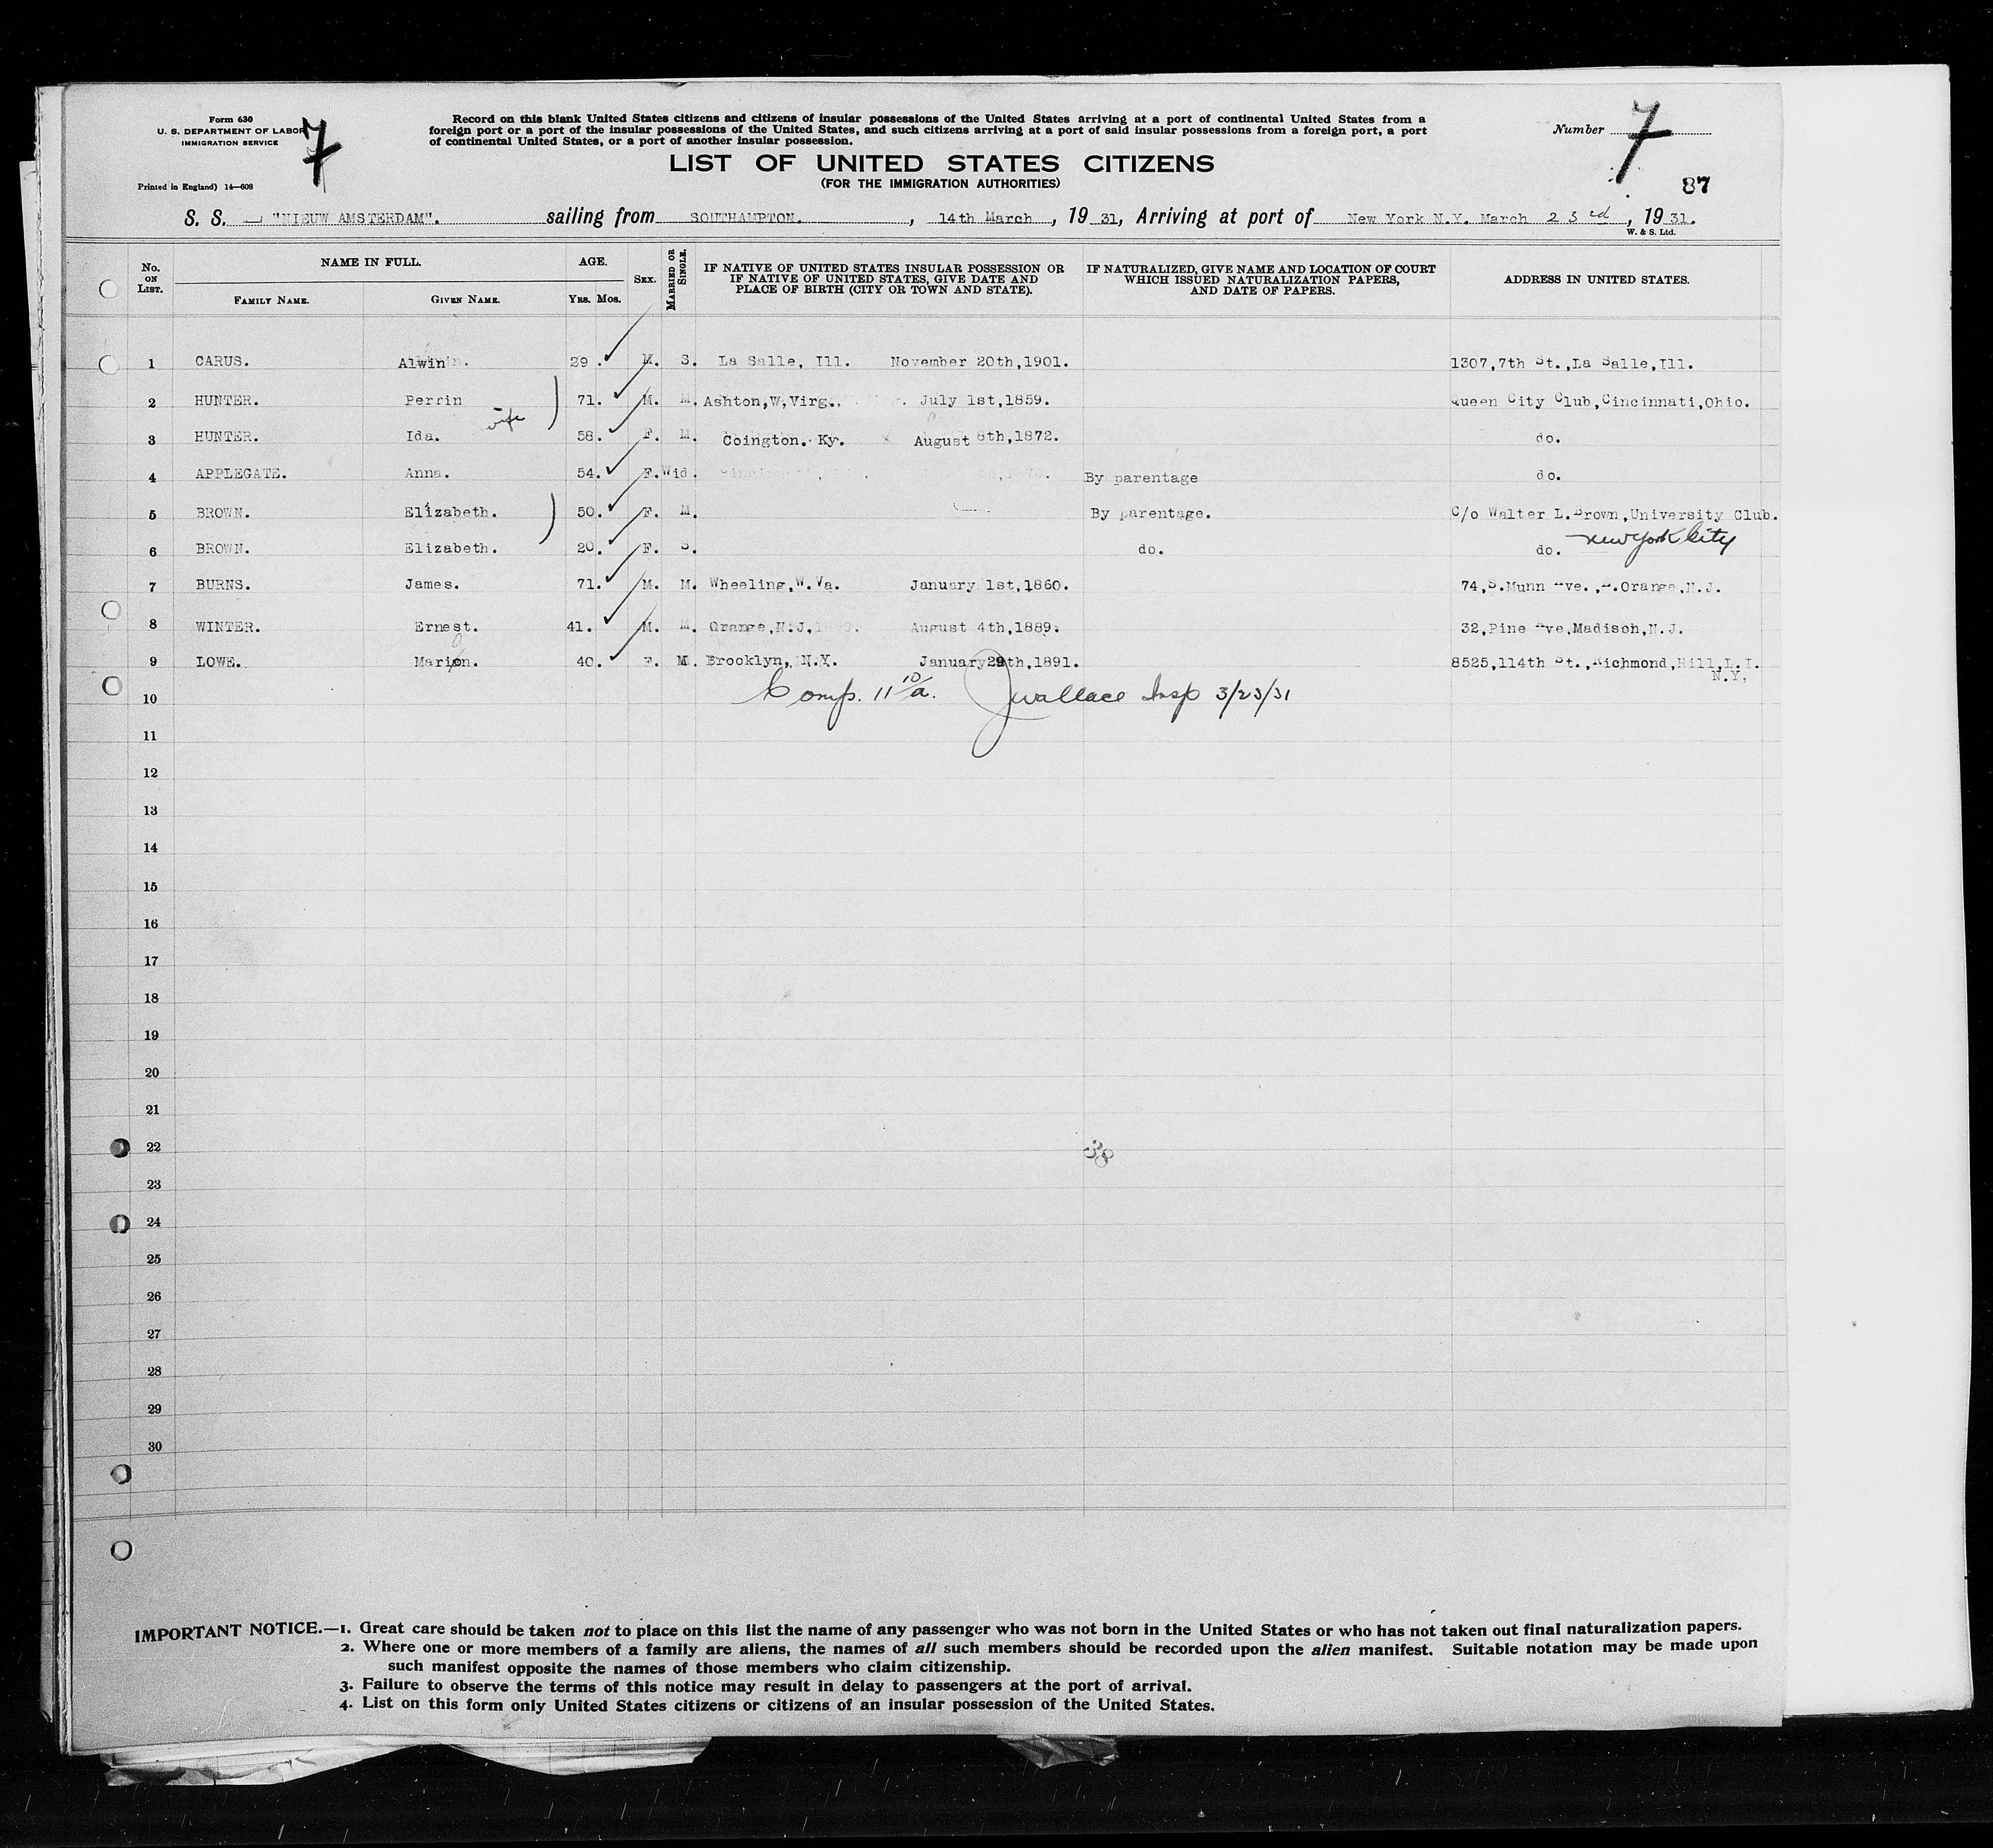 Form 630
U. S. DEPARTMENT OF LABOR
IMMIGRATION SERVICE
7
Printed in England) 14—608
Record on this blank United States citizens and citizens of insular possessions of the United States arriving at a port of continental United States from a
foreign port or a port of the insular possessions of the United States, and such citizens arriving at a port of said insular possessions from a foreign port, a port
of continental United States, or a port of another insular possession.
LIST OF UNITED STATES CITIZENS
(FOR THE IMMIGRATION AUTHORITIES)
Number 7
87
S. S. "NIEUW AMSTERDAM". sailing from SOUTHAMPTON. , 14th March , 19 31, Arriving at port of New York N.Y. March 23rd , 19 31.
W. & S. Ltd.
No. ON LIST.
NAME IN FULL.
FAMILY NAME. GIVEN NAME.
AGE.
YRS. MOS.
SEX.
MARRIED OR SINGLE.
IF NATIVE OF UNITED STATES INSULAR POSSESSION OR
IF NATIVE OF UNITED STATES, GIVE DATE AND
PLACE OF BIRTH (CITY OR TOWN AND STATE).
IF NATURALIZED, GIVE NAME AND LOCATION OF COURT
WHICH ISSUED NATURALIZATION PAPERS,
AND DATE OF PAPERS.
ADDRESS IN UNITED STATES.
1 CARUS. Alwin. 29. M. S. La Salle, Ill. November 20th,1901. 1307,7th St.,La Salle,Ill.
2 HUNTER. Perrin 71. M. M. Ashton,W,Virg. July 1st,1859. Queen City Club,Cincinnati,Ohio.
wife
3 HUNTER. Ida. 58. F. M. Coington. Ky. August 8th,1872. do.
4 APPLEGATE. Anna. 54. F. Wid. By parentage do.
5 BROWN. Elizabeth. 50. F. M. By parentage. C/o Walter L.Brown,University Club.
New York City
6 BROWN. Elizabeth. 20. F. S. do. do.
7 BURNS. James. 71. M. M. Wheeling,W.Va. January 1st,1860. 74,S.Munn Ave.,E.Orange,N.J.
8 WINTER. Ernest. 41. M. M. Orange,N.J, August 4th,1889. 32,Pine Ave,Madison,N.J.
9 LOWE. Marion. 40. F. M. Brooklyn, N.Y. January 29th,1891. 8525,114th St.,Richmond,Hill,L.I.
N.Y,
10 Comp. 11 10/a. J Wallace Insp 3/23/31
11
12
13
14
15
16
17
18
19
20
21
22
23
24
25
26
27
28
29
30
IMPORTANT NOTICE.—1. Great care should be taken not to place on this list the name of any passenger who was not born in the United States or who has not taken out final naturalization papers.
2. Where one or more members of a family are aliens, the names of all such members should be recorded upon the alien manifest. Suitable notation may be made upon
such manifest opposite the names of those members who claim citizenship.
3. Failure to observe the terms of this notice may result in delay to passengers at the port of arrival.
4. List on this form only United States citizens or citizens of an insular possession of the United States.